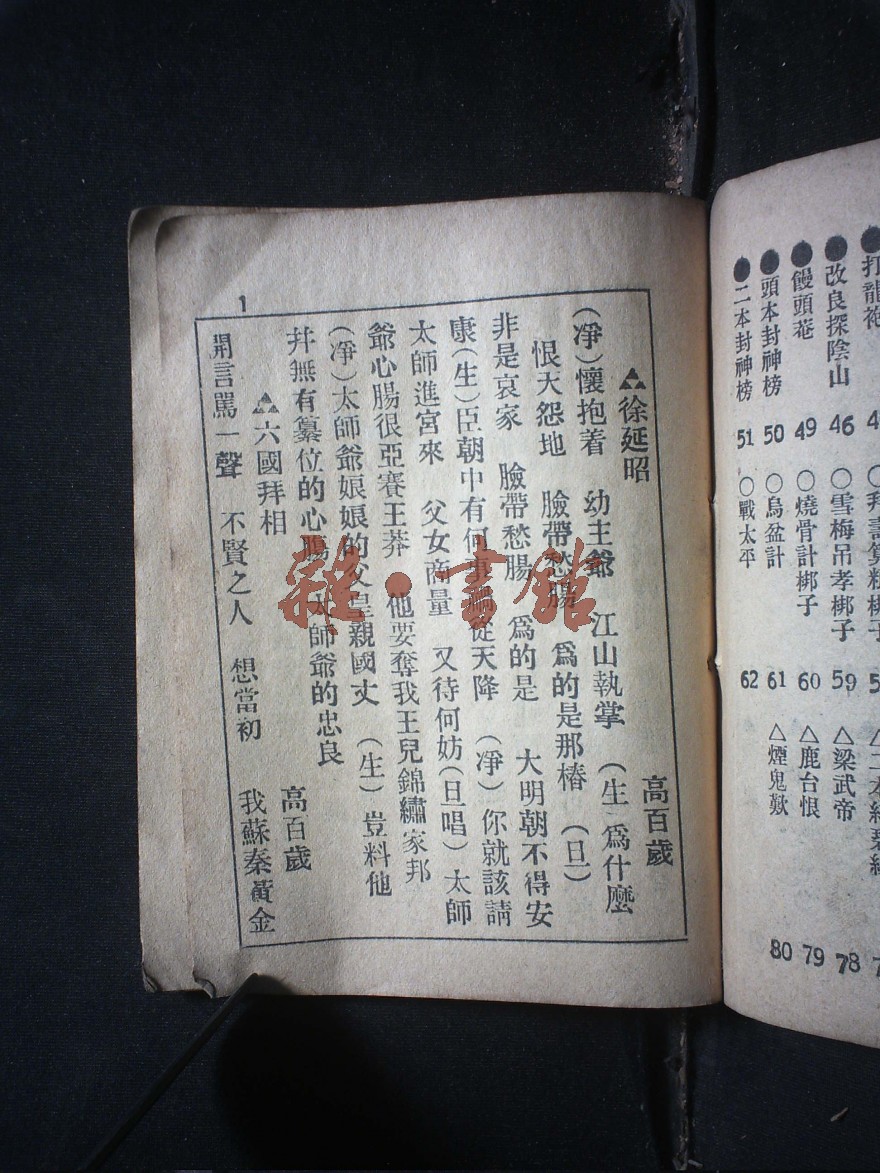 打龍袍
改良探陰山 46 ○雪梅吊孝梆子 59 △梁武帝 78
饅頭菴 49 ○燒骨計梆子 60 △鹿台恨 79
頭本封神榜 50 ○烏盆計 61 △煙鬼歎 80
二本封神榜 51 ○戰太平 62
徐延昭 高百歲
(凈)懷抱着 幼主爺 江山執掌 (生)爲什麽
恨天怨地 臉帶愁腸 爲的是那樁 (旦)
非是哀家 臉帶愁腸 爲的是 大明朝不得安
康(生)臣朝中有何事 從天降 (凈)你就該請
太師進宮來 父女商量 又待何妨(旦唱)太師
爺心腸很亞賽王莽 他要奪我王兒錦繡家邦
(凈)太師爺娘娘的父皇親國丈 (生)豈料他
幷無有纂位的心腸 太師爺的忠良
六國拜相 高百歲
開言罵一聲 不賢之人 想當初 我蘇秦黃金
1
雜·書館